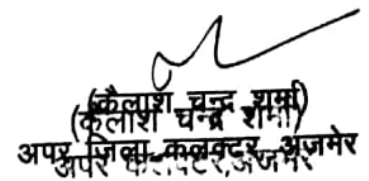 (कैलाश चन्द्र शर्मा)
(कैलाश चन्द्र शर्मा)
अपर जिला कलक्टर, अजमेर
अपर कलक्टर, अजमेर